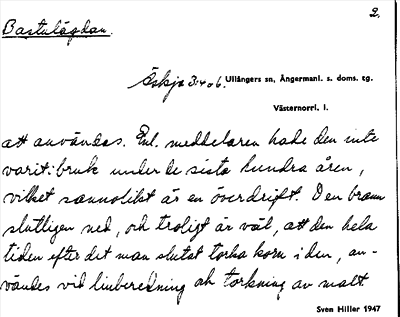 2.
Bastulågdan.
Äskja 3:4 o 6. Ullångers sn, Ångermanl. s. doms. tg.
Västernorrl. l.
att användas. Enl. meddelaren hade den inte
varit i bruk under de sista hundra åren,
vilket sannolikt är en överdrift. Den brann
slutligen ned, och troligt är väl, att den hela
tiden efter det man slutat torka korn i den, an-
vändes vid linberedning och torkning av malt.
Sven Hiller 1947